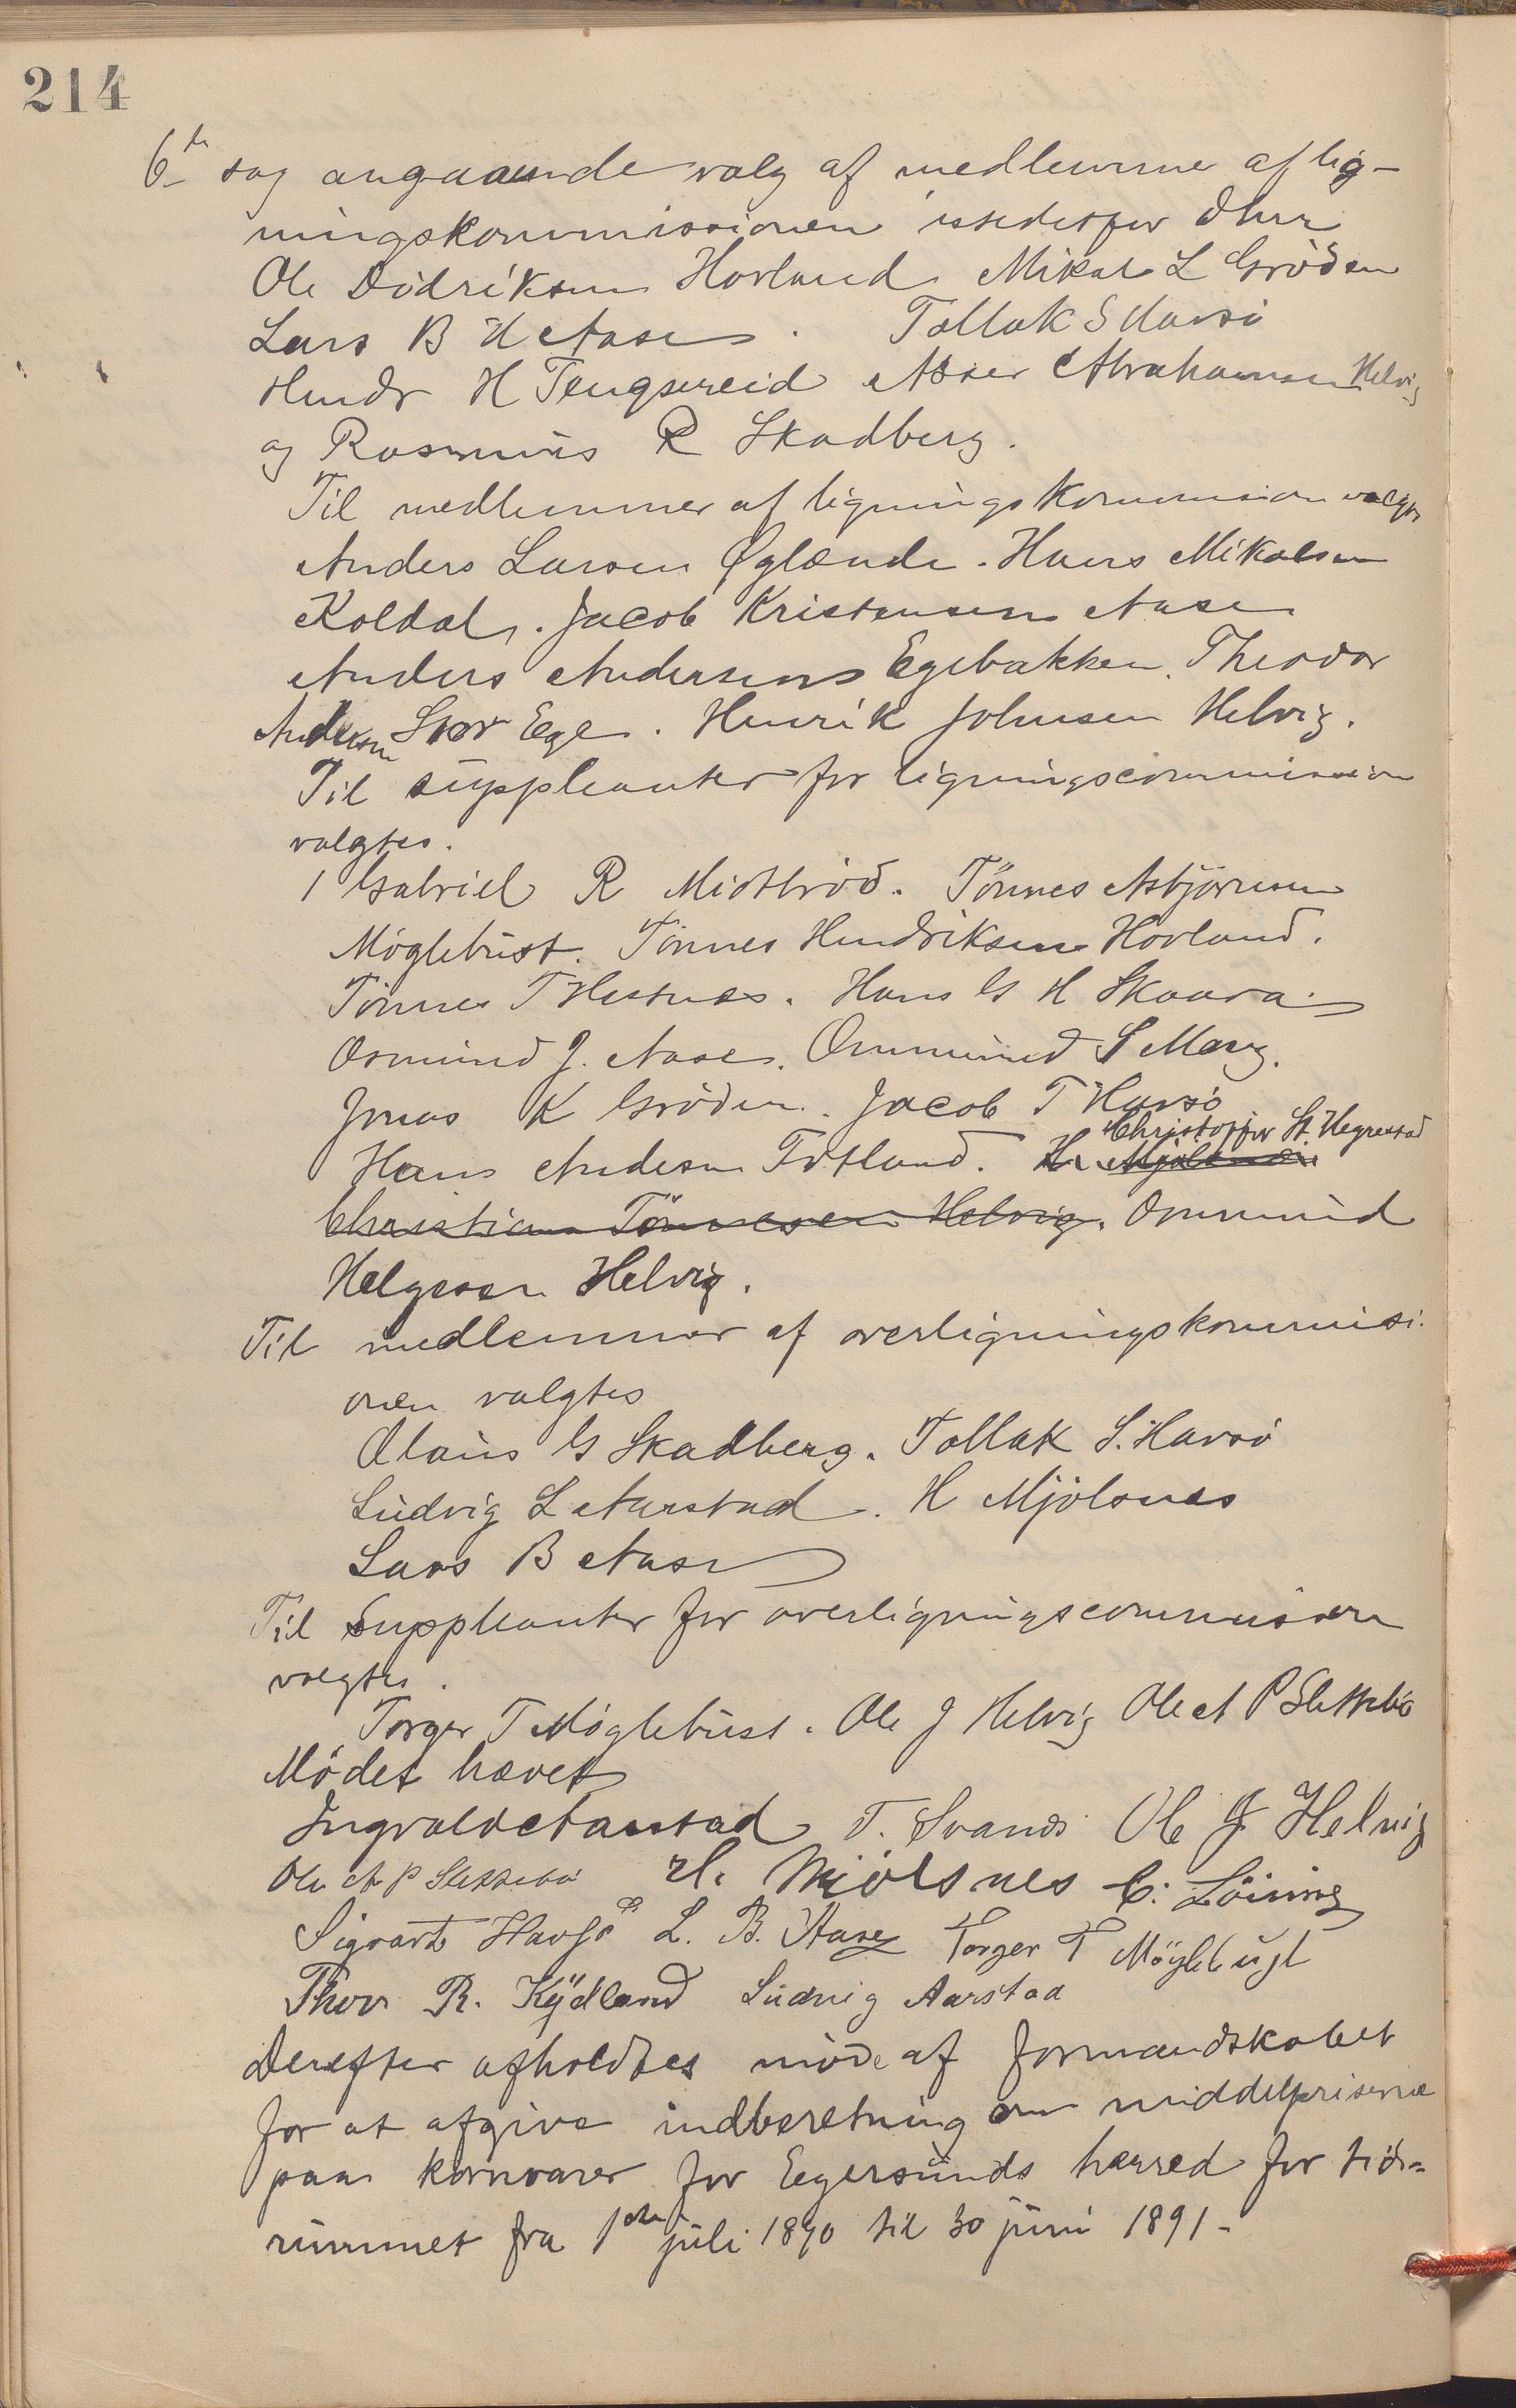 214
6te sag angaaende valg af medlemmer af lig-
ningskommissionen istedetfor dhrr
Ole Didriksen Hovland Mikal L Gröden
Lars B H Aase. Tollak S Havsö
Hendr H Tengsereid Asser Abrahamsen Helvig
og Rasmus R Skadberg.
Til medlemmer af ligningskommision valgtes
Anders Larsen Øglænde. Hans Mikalsen
Koldal. Jacob Kristensen Aase
Anders Andersens Egebakken. Theodor
Andersen Stor Ege. Henrik Johnsen Helvig.
Til suppleanter for ligningscommission
valgtes.
1 Gabriel R Midbröd. Tönnes Asbjörnsen
Möglebust. Tönnes Hendriksen Hovland.
Tönnes T Hestnes. Hans G H Skaara.
Osmund J. Aase. Ommund S Mong.
Jonas K Gröden. Jacob T Havsö
Hans Andersen Totland. H. Mjölsnæs Christoffer St. Hegrestad
Christian Tönnesen Helvig. Ommund
Helgesen Helvig.
Til medlemmer af overligningskommisi-
onen valgtes
Olaus G Skadberg. Tollak S. Havsö
Ludvig L Aarstad. H Mjölsnes
Lars B Aase
Til Suppleanter for overligningscommissionen
valgtes.
Torger T Möglebust. Ole J Helvig Ole A P Slettebö
Mödet hævet
Ingvald Aarstad T. Svanes Ole J Helvig
Ole A P Slettebö H. Mjölsnes C. Löining
Sigvart Havsö L. B. Aase Torger T Möglebust
Thor R. Kydland Ludvig Aarstad
Derefter afholdtes möde af formandskabet
for at afgive indberetning om middelpriserne
paa kornvarer for Egersunds herred for tids-
rummet fra 1ste juli 1890 til 30 juni 1891-